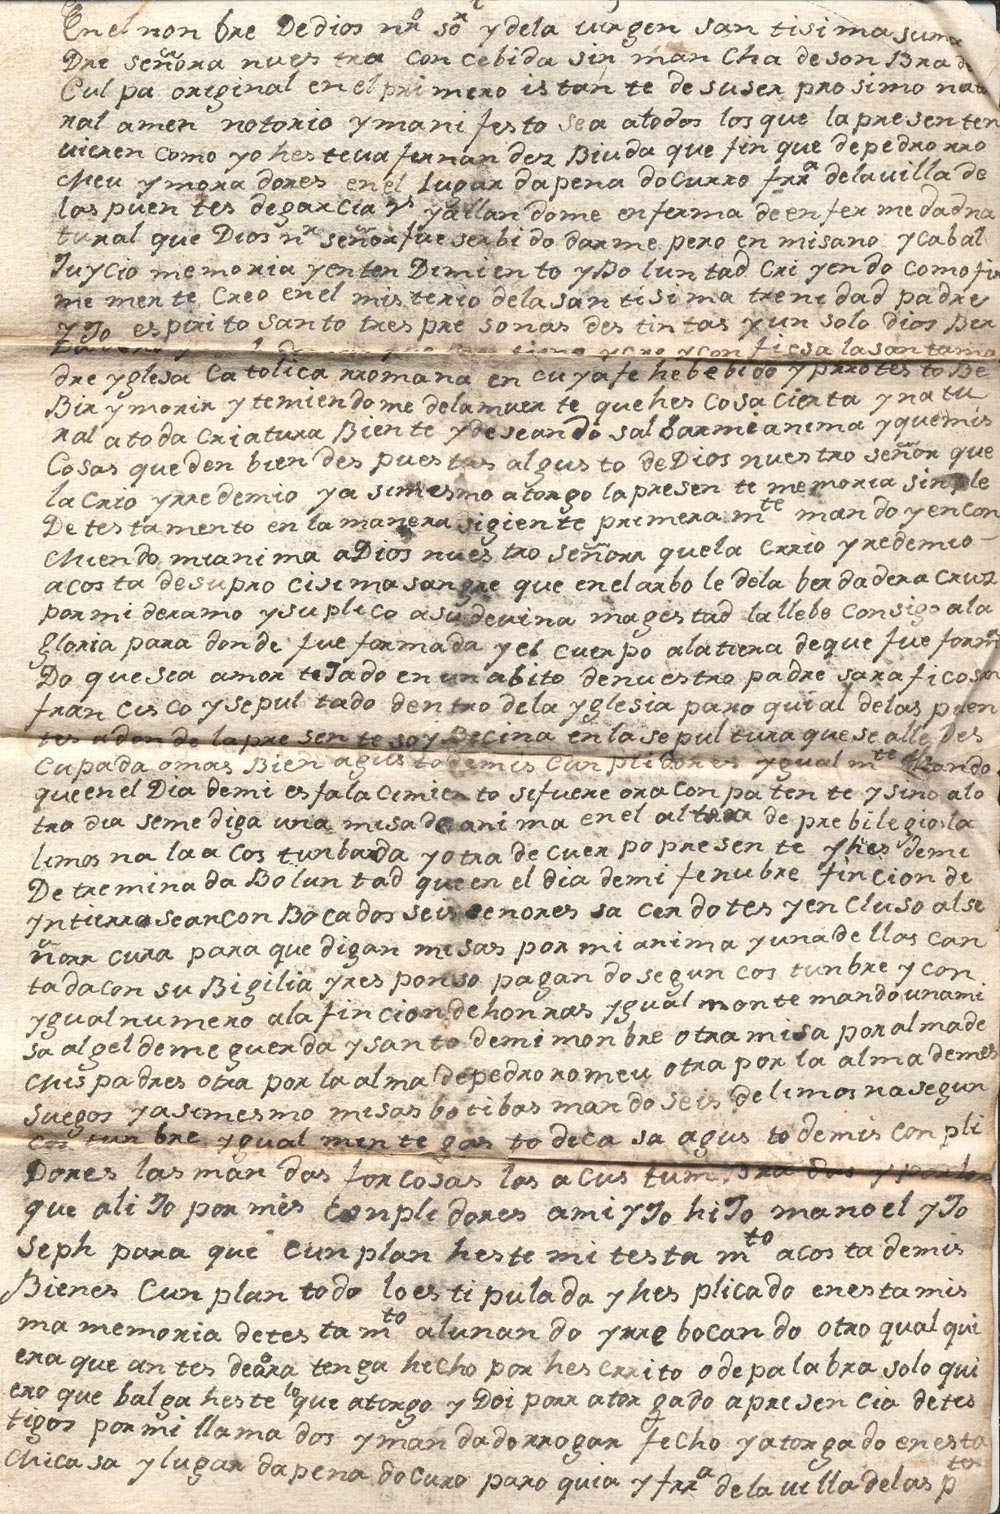 En el non bre De dios nrº sôr y dela virgen san tisima suma
Dre señora nues tra con cebida sin man cha de son Bra de
Cul pa original en el primero is tan te de su ser pro simo natu
ral amen notorio y mani festo sea a todos los que la presenten
vieren como yo hesteva fernan dez Biuda que fin que de pedro rro
meu y mora dores en el Lugar da pena do Curro frrª dela villa de
las puen tes de garcia rs y allan dome en ferma de en fer medad na
tural que Dios nr señor fue serbi do darme pero en mi sano y cabal
Juycio memoria y en ten Dimi en to y Bo lun tad Cri yen do como fir
me men te Creo en el mis terio dela san tisima treni dad padre
y Jo es piri to san to tres pre sonas des tin tas y un solo dios Ber
y cre y con fiesa la san tama
dre yglesa Ca tolica rromana en cu ya fe he be bido y prrotes to Be
Bir y morir y temiendo me dela muer te que hes cosa cierta y na tu
ral a to da Criatura Bien te y de sean do sal bar mi anima y que mis
Cosas que den bien des pues tas al gus to de Dios nuestro señor que
la crio y rre demio y a simesmo a torgo la presen te memoria sin ple
De tes tamento en la manera sigiente primera mte mando y en con
chiendo mi anima a Dios nues tro señorr que la crrio y redemio
a cos ta de su pro cisima sangre que en el arbo le dela ber dadera Cruz
por mi deramo y suplico a su devina magestad la llebe Consigo a la
gloria para don de fue formada y el cuerpo a la tiera de que fue forma
Do que sea amor te Jado en un abito de nuestro padre sarafico san
fran cisco y sepul tado den tro dela yglesia paro quial delas puen
tes a don de la pre sen te soy Becina en la se pul tura que se alle Des
Cupada o mas Bien a gus to de mis Cun pli dores y gual mte mando
que en el Dia de mi es falacimien to si fuere ora con pa ten te y sino al o
tro dia se me diga una misa de anima en el al tar de pre bilegio la
limos na la a cos tunbarda y otra de cuer po pre sen te y hes de mi
De tre mina da Bo lun tad que en el dia de mi fenubre fincion de
yn tierro sean con Bocados seis señores sa cer do tes y en cluso al se
ñorr cura para que digan misas por mi anima y una dellas can
tada con su Bigilia y res pon so pagan do segun cos tunbre y con
ygual numero a la fincion de honrras ygual mente mando una mi
sa al gel de me guer da y san to de mi mon bre otra misa por al ma de
mis padres otra por la alma de pedro romeu otra por la alma de mes
suegos y a simesmo misas bo ti bas man do seis de limos na segun
cos tun bre y gual men te gas to de ca sa a gus to de mis con pli
Dores las man das forcosas las a cus tum bra das y por lo
que ali Jo por mes Conpli dores a mi y Jo hi Jo mano el y Jo
seph para que cun plan heste mi testa mto a cos ta de mis
Bienes Cun plan todo lo es ti pulada y hes plicado en esta mis
ma memoria de tes ta mto a lunan do y rre bocan do otro qual qui
era que an tes de aora tenga hecho por hes crrito o de pa la bra solo qui
ero que balga heste lo que atorgo y Doi por ator gado a pre sen cia de tes
tigos por mi llama dos y man dado rrogar fecho y a torgado en esta
Chi ca sa y lugar da pena do Curo paro quia y frrª de la villa de las ptes